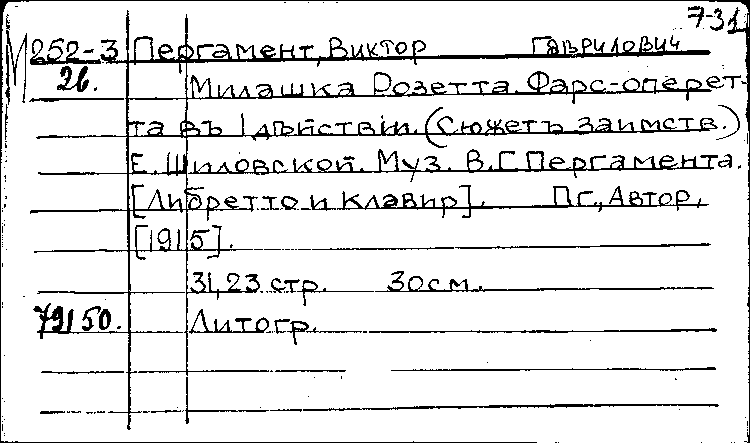 7-31
М252-3 Пергамент, Виктор Гаврилович
26. Милашка Розетта. Фарс-оперет-
та въ 1 дѣйствіи. (Сюжетъ заимств.)
Е. Шиловской. Муз. В.Г. Пергамента.
[Либретто и клавир]. Пг., Автор,
[1915].
31, 23 стр. 30 см.
79150. Литогр.